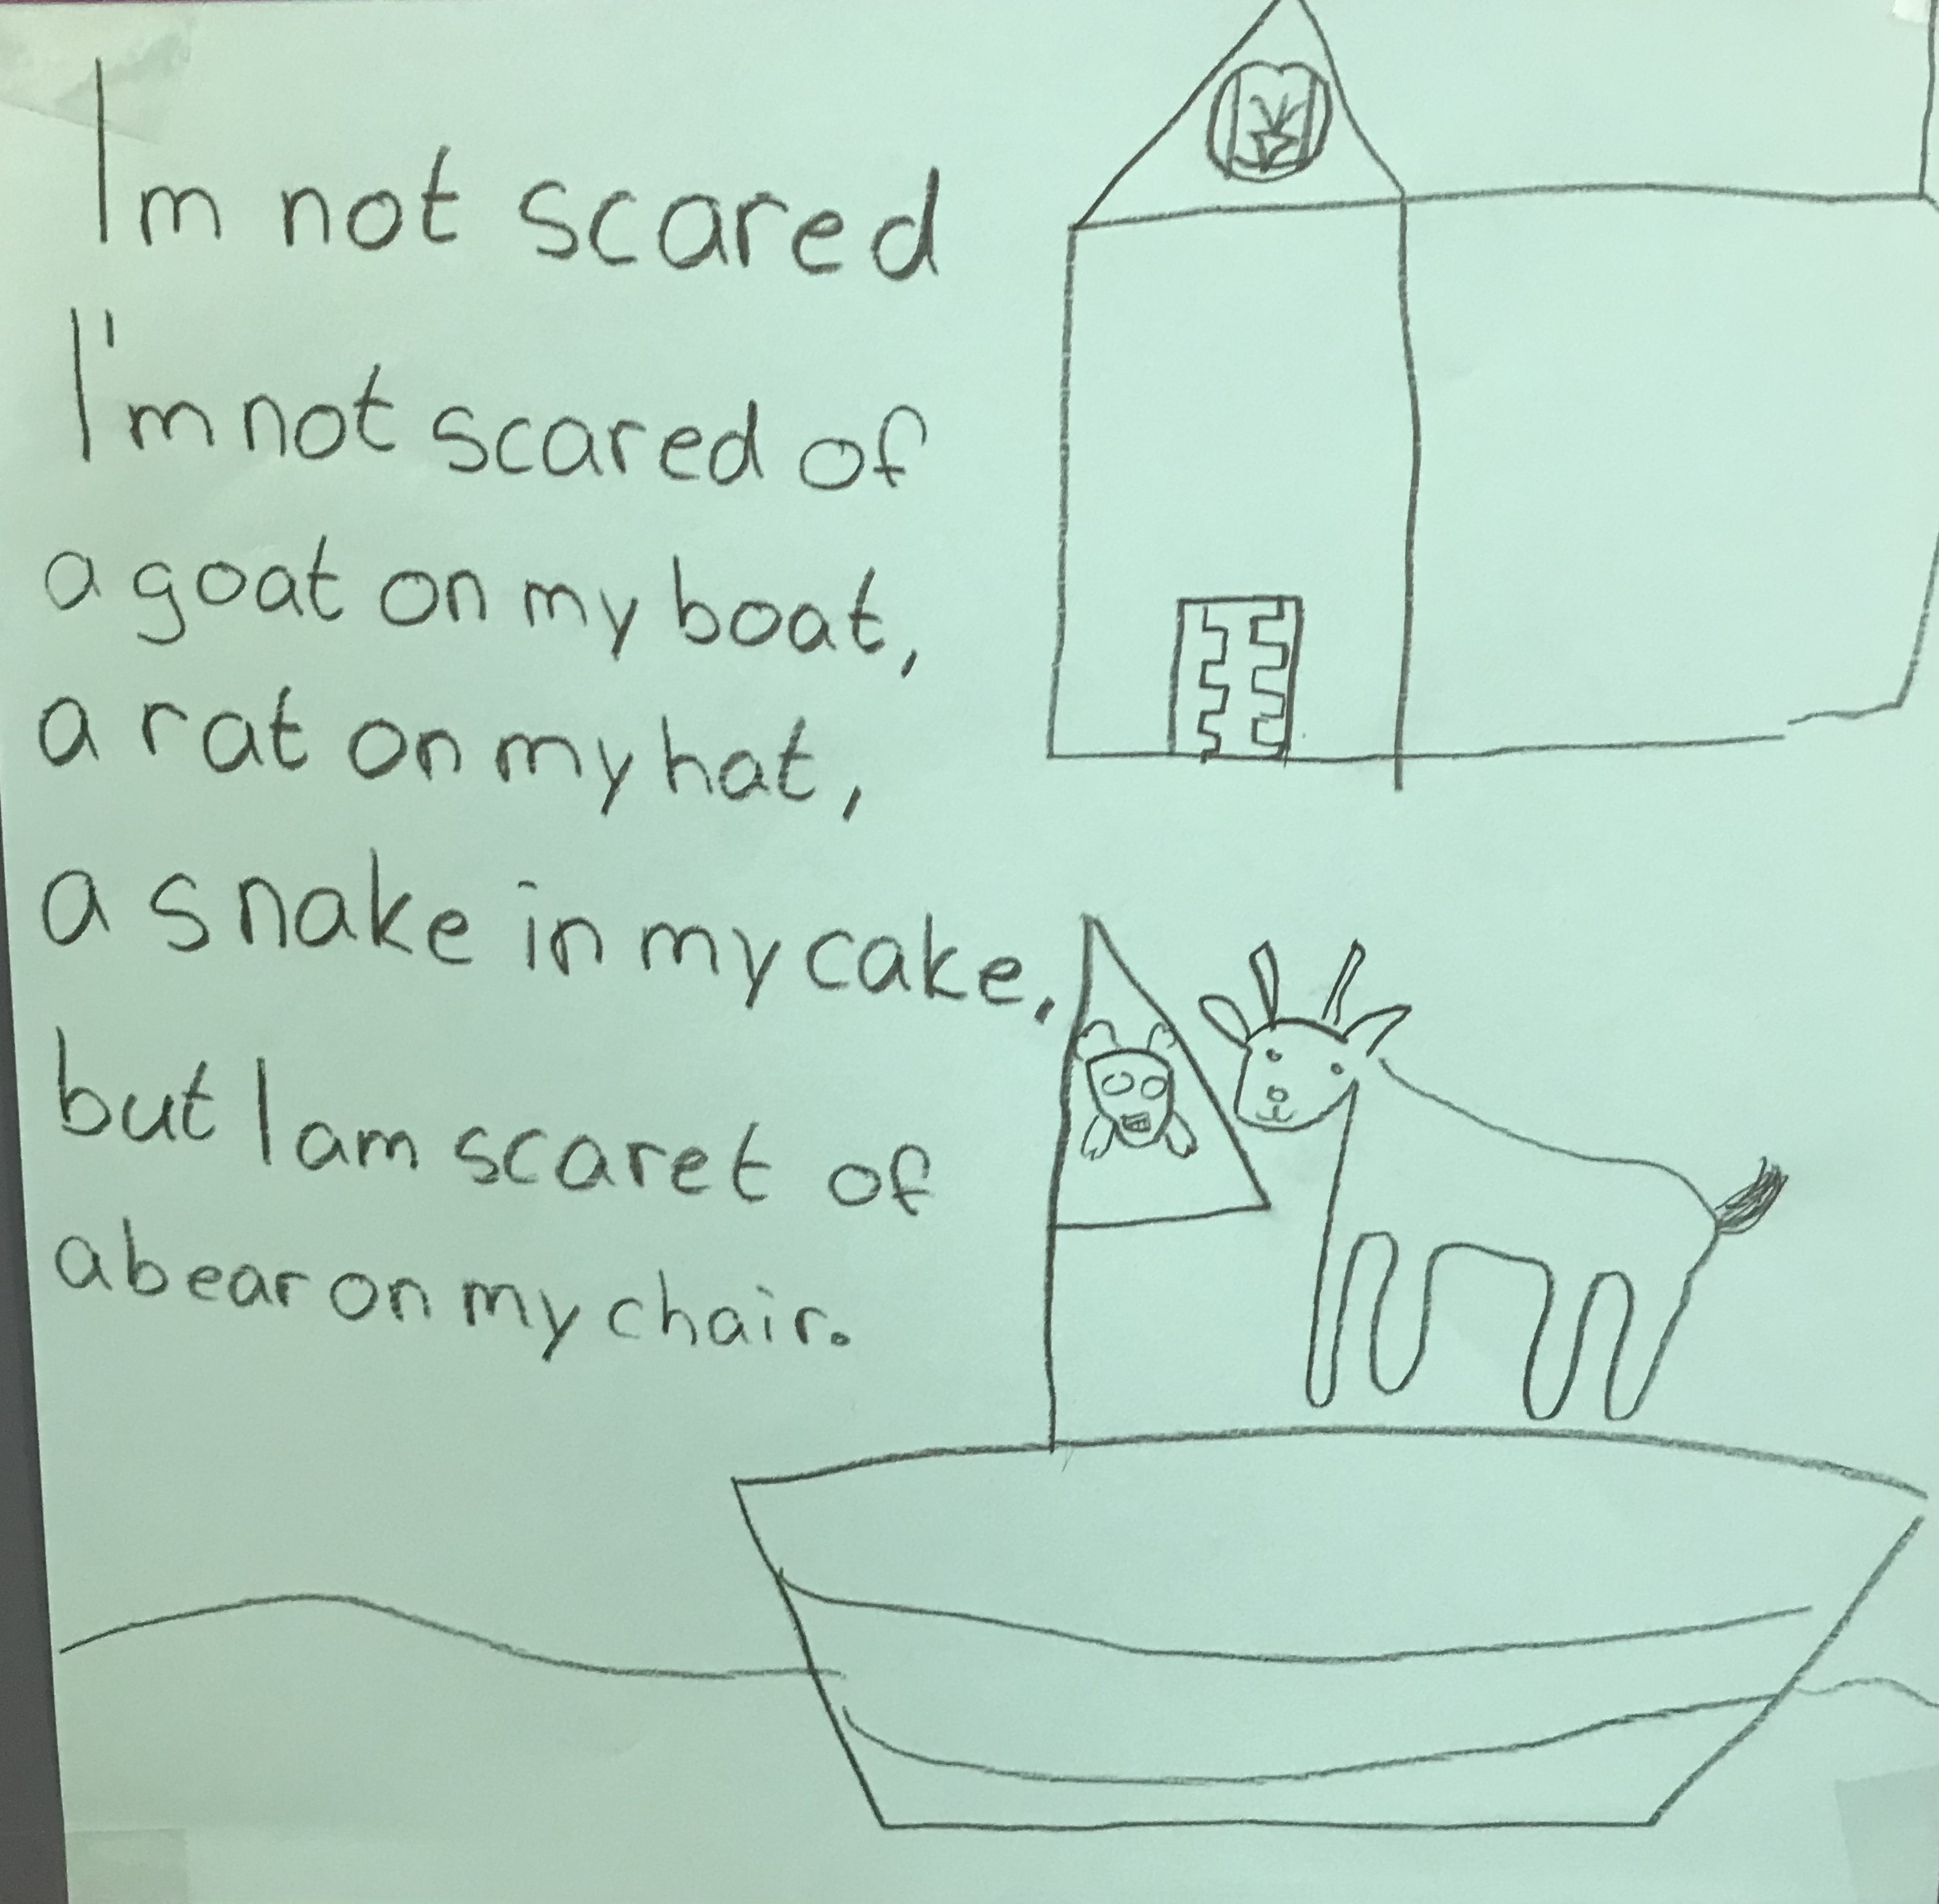 I'm not scared
I'm not scared of
a goat on my boat,
a rat on my hat,
a snake in my cake,
but I am scaret of
a bear on my chair.